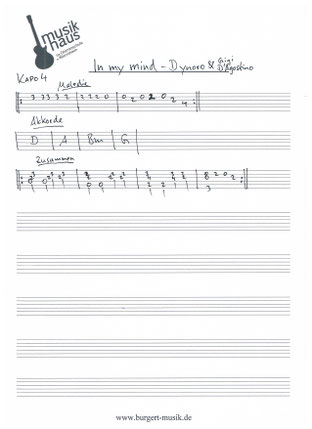 musik
haus
In my mind - Dynoro & Gigi D'Agostino
Kapo 4
Melodie
3 3 3 2 2 2 2 0 0 2 0 2 0 2 4
Akkorde
D A Bm G
Zusammen
www.burgert-musik.de